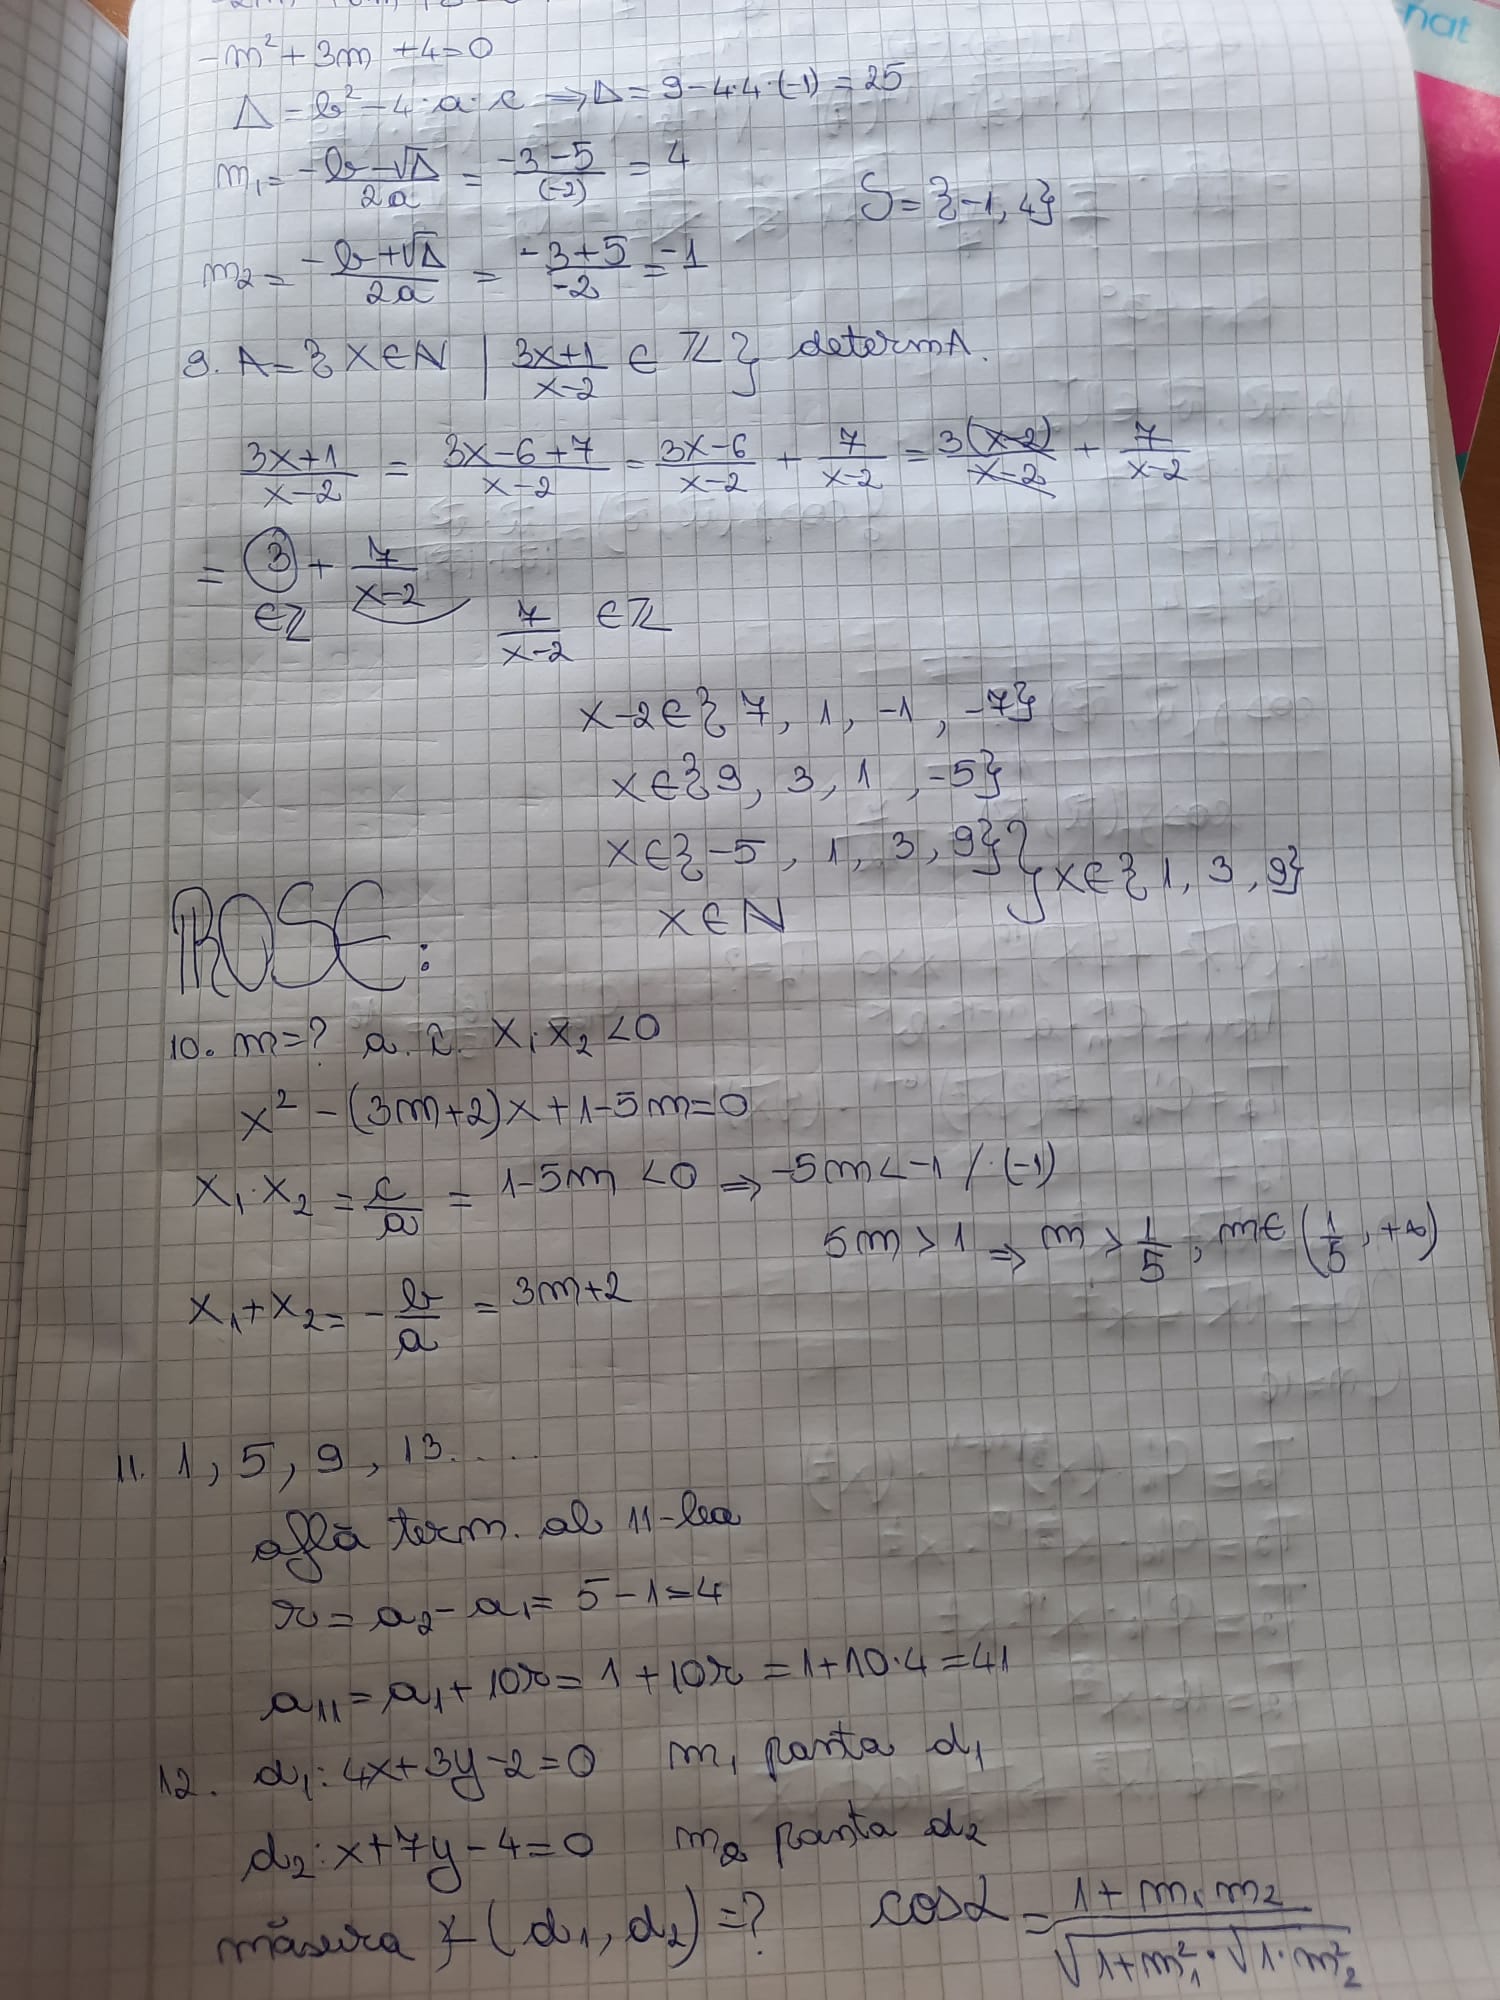 -m² + 3m + 4 = 0
Δ = b² - 4·a·c ⇒ Δ = 9 - 4·4·(-1) = 25
m₁ = (-b - √Δ)/(2a) = (-3 - 5)/(-2) = 4
S = {-1, 4}
m₂ = (-b + √Δ)/(2a) = (-3 + 5)/(-2) = -1
9. A = {x ∈ N | (3x+1)/(x-2) ∈ Z} determ A.
(3x+1)/(x-2) = (3x-6+7)/(x-2) = (3x-6)/(x-2) + 7/(x-2) = 3(x-2)/(x-2) + 7/(x-2)
= 3 + 7/(x-2)
∈ Z 7/(x-2) ∈ Z
x-2 ∈ {7, 1, -1, -7}
x ∈ {9, 3, 1, -5}
x ∈ {-5, 1, 3, 9} } x ∈ {1, 3, 9}
x ∈ N
ROSE:
10. m = ? a. î. x₁·x₂ < 0
x² - (3m+2)x + 1 - 5m = 0
x₁·x₂ = c/a = 1 - 5m < 0 ⇒ -5m < -1 /·(-1)
5m > 1 ⇒ m > 1/5, m ∈ (1/5, +∞)
x₁ + x₂ = -b/a = 3m+2
11. 1, 5, 9, 13.....
află term. al 11-lea
r = a₂ - a₁ = 5 - 1 = 4
a₁₁ = a₁ + 10r = 1 + 10r = 1 + 10·4 = 41
12. d₁: 4x + 3y - 2 = 0 m₁ panta d₁
d₂: x + 7y - 4 = 0 m₂ panta d₂
măsura ∡(d₁, d₂) = ? cos α = (1 + m₁ m₂)/(√(1+m₁²)·√(1·m₂²))
nat